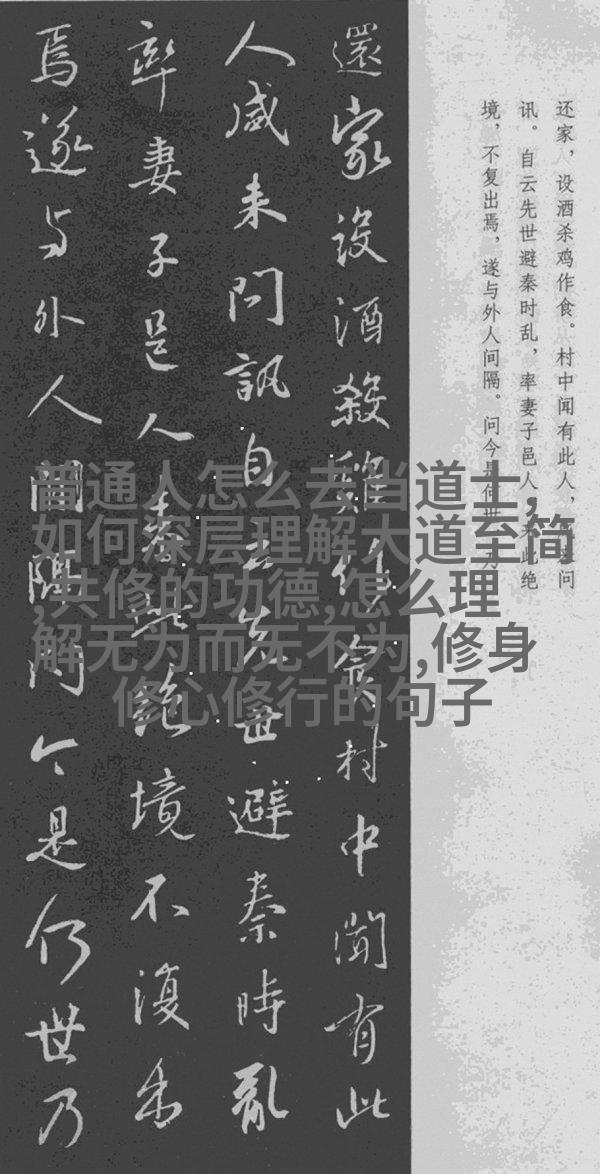 还家，设酒杀鸡作食。村中闻有此人，咸来问
讯。自云先世避秦时乱，率妻子邑人来此绝
境，不复出焉，遂与外人间隔。问今是何世，乃
還家設酒殺雞作食村中聞有此
人咸来問訊自云先世避秦時亂
率妻子邑人来此絶境不復出
焉遂与外人間隔問今是何世乃
普通人怎么去当道士,
如何深层理解大道至简
,共修的功德,怎么理
解无为而无不为,修身
修心修行的句子